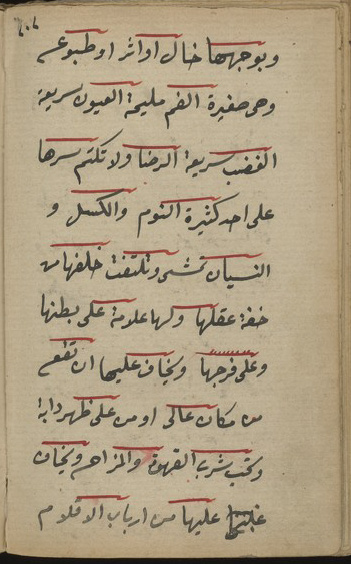 ٢٠٤
وبوجهها خال او اثر او طبوع
وهى صغيرة الفم مليحة العيون سريعة
الغضب سريعة الرضا ولا تكتم سرها
على احد كثيرة النوم والكسل و
النسيان تمشى وتلتفت خلفها من
خفة عقلها ولها علامة على بطنها
وعلى فرجها ويخاف عليها ان تقع
من مكان عالى او من على ظهر دابة
وتحب شرب القهوة والمزاهر ويخاف
عليها من ارباب الاقلام